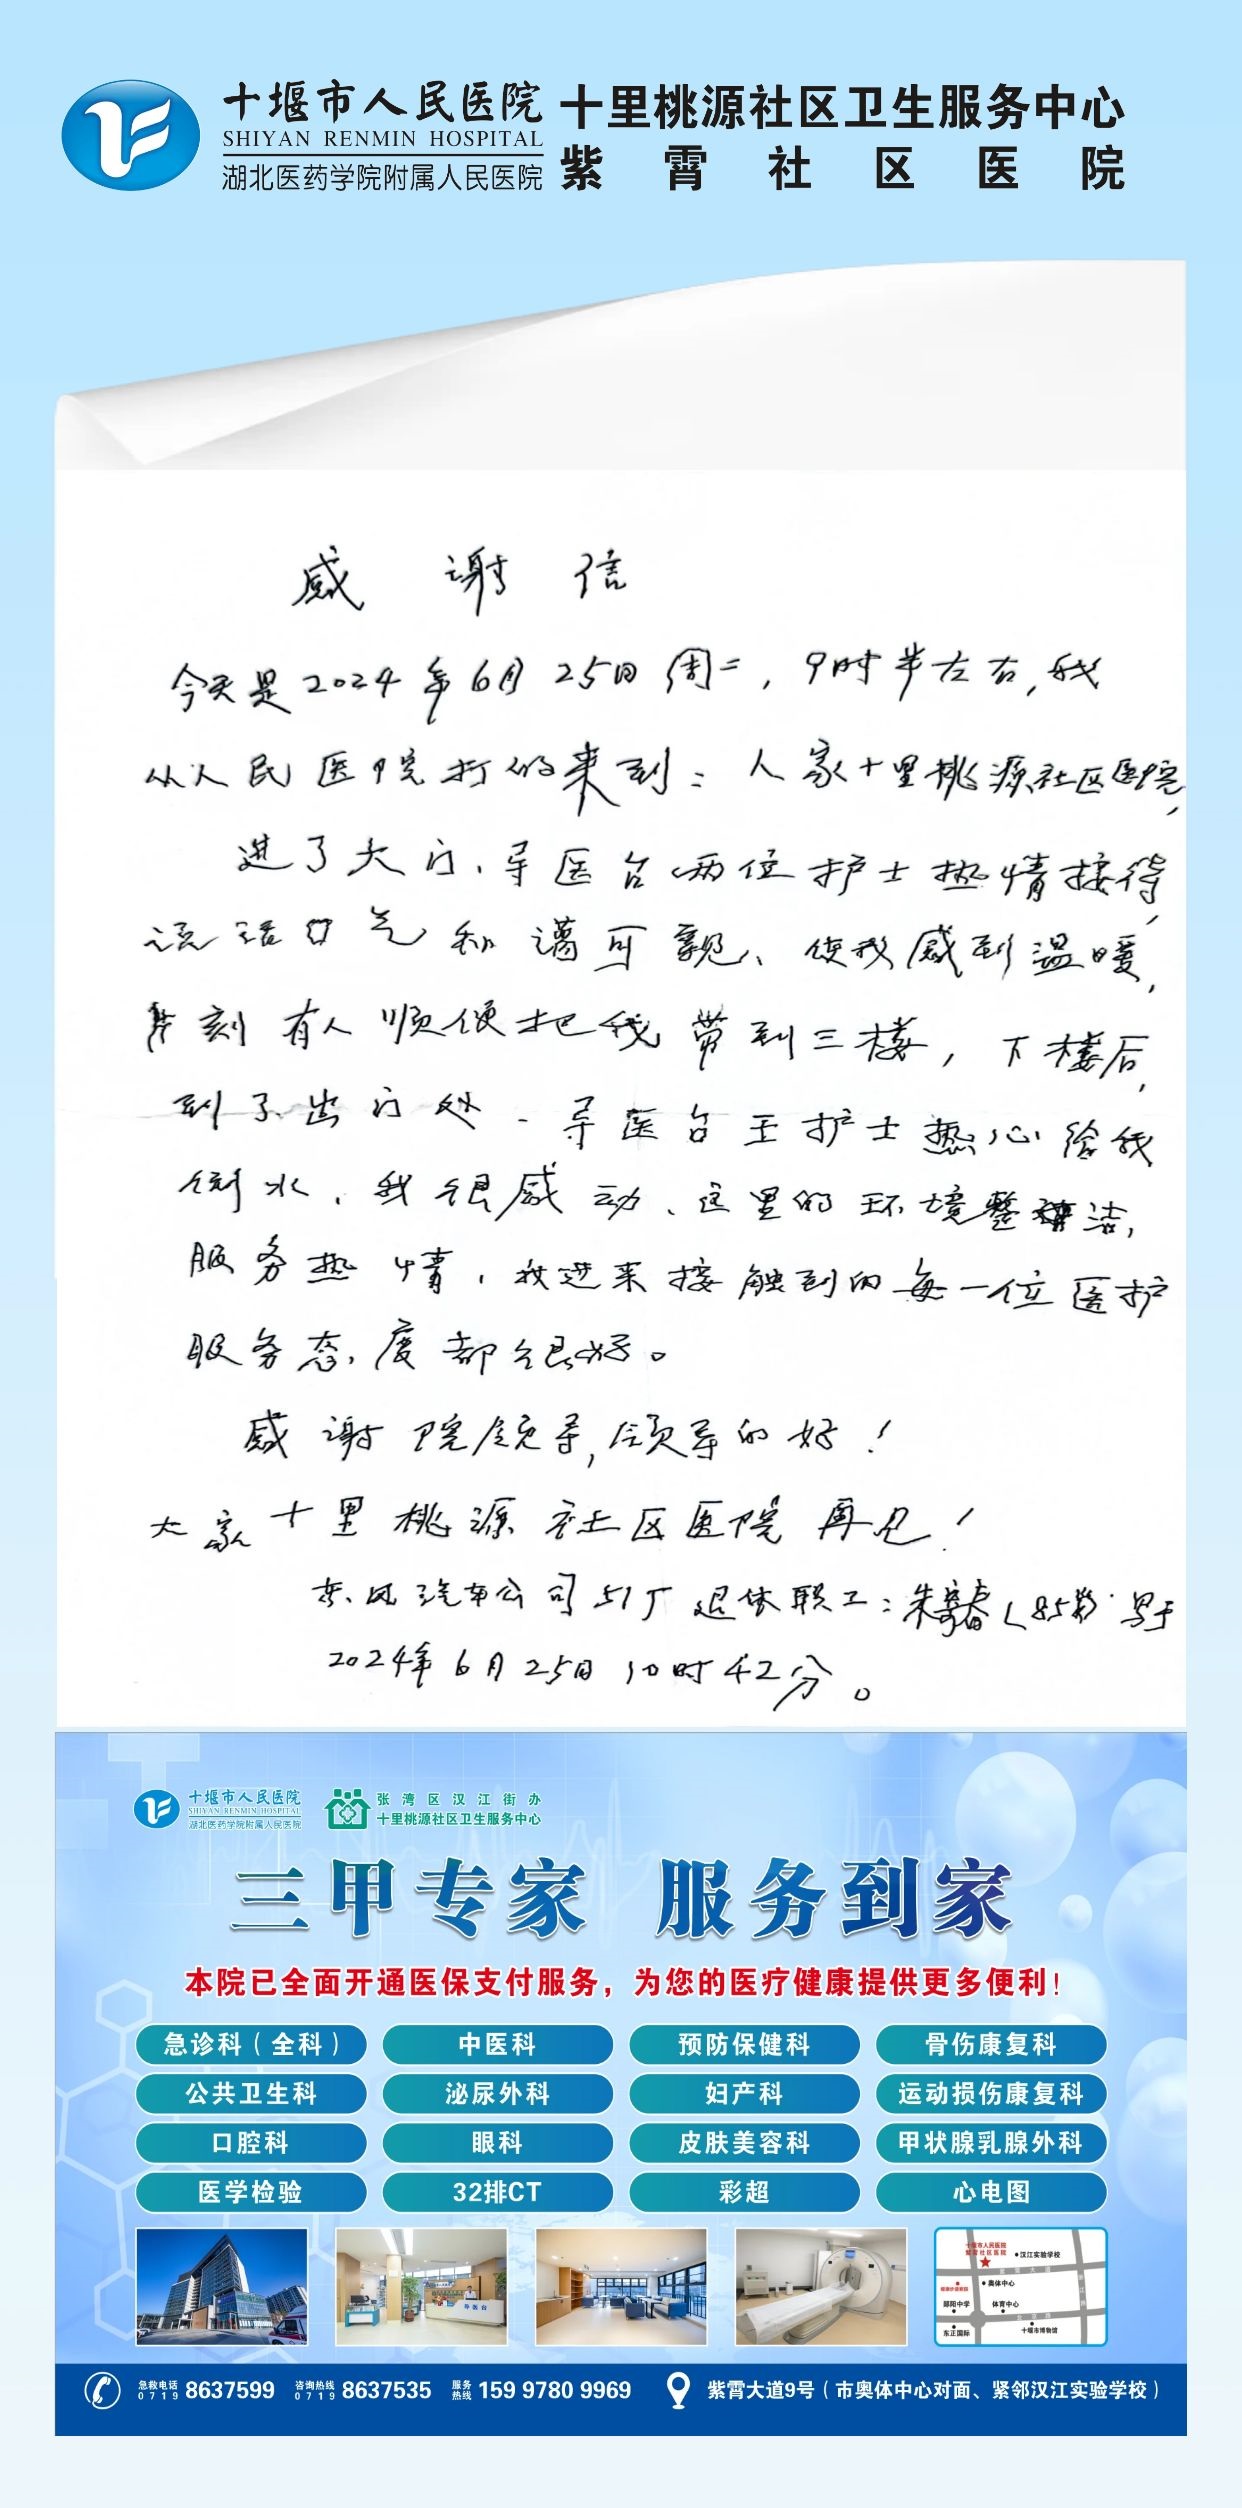 十堰市人民医院
SHIYAN RENMIN HOSPITAL
湖北医药学院附属人民医院
十里桃源社区卫生服务中心
紫霄社区医院
感谢信
今天是2024年6月25日周二，9时半左右，我
从人民医院打的来到：人家十里桃源社区医院，
进了大门、导医台两位护士热情接待，
说话口气和蔼可亲、使我感到温暖，
片刻有人顺便把我带到三楼，下楼后，
到了出门处、导医台王护士热心给我
倒水、我很感动、这里的环境整洁，
服务热情，我进来接触到的每一位医护
服务态度都很好。
感谢院领导，领导的好！
大家十里桃源社区医院再见！
东风汽车公司51厂退休职工：朱春（85岁 写于
2024年6月25日10时42分。
十堰市人民医院
SHIYAN RENMIN HOSPITAL
湖北医药学院附属人民医院
张湾区汉江街办
十里桃源社区卫生服务中心
三甲专家 服务到家
本院已全面开通医保支付服务，为您的医疗健康提供更多便利！
急诊科（全科） 中医科 预防保健科 骨伤康复科
公共卫生科 泌尿外科 妇产科 运动损伤康复科
口腔科 眼科 皮肤美容科 甲状腺乳腺外科
医学检验 32排CT 彩超 心电图
导医台
十堰市人民医院
紫霄社区医院
汉江实验学校
奥体中心
郧阳中学
体育中心
东正国际
十堰市博物馆
急救电话 0719 8637599 咨询热线 0719 8637535 服务热线 159 9780 9969 紫霄大道9号（市奥体中心对面、紧邻汉江实验学校）